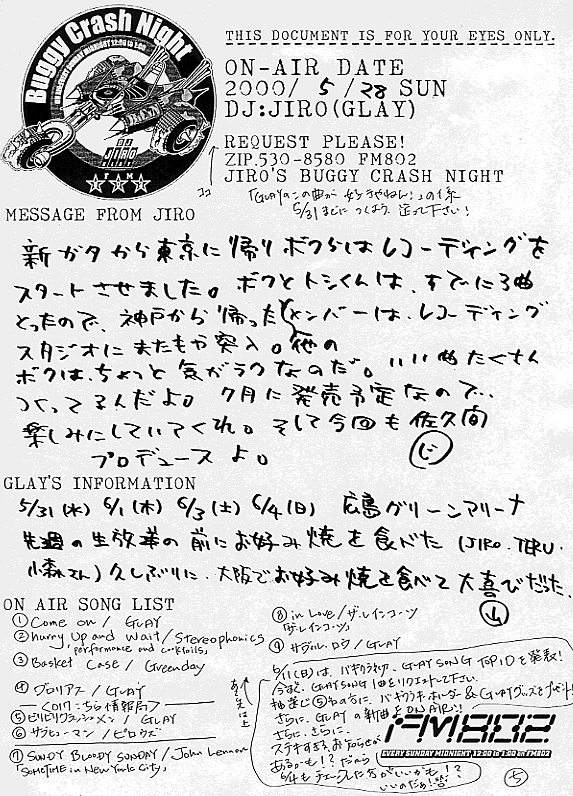 Buggy Crash Night
EVERY SUNDAY MIDNIGHT 12:00 to 1:00
DJ
JIRO
GLAY
THIS DOCUMENT IS FOR YOUR EYES ONLY.
ON-AIR DATE
2000/ 5 /28 SUN
DJ:JIRO(GLAY)
REQUEST PLEASE!
ZIP.530-8580 FM802
JIRO'S BUGGY CRASH NIGHT
ココ
「GLAYのこの曲が好きやねん!」の係
5/31までに つくよう 送って下さい!
MESSAGE FROM JIRO
新ガタから東京に帰りボクらはレコーディングを
スタートさせました。ボクとトシくんは、すでに3曲
とったので、神戸から帰ったメンバーは、レコーディング
他の
スタジオにまたもや突入。
ボクは、ちょっと気がラクなのだ。いい曲たくさん
つくってるんだよ。7月に発売予定なので…
楽しみにしていてくれ。そして今回も佐久間
プロデュースよ。
じ
GLAY'S INFORMATION
5/31(水) 6/1(木) 6/3(土) 6/4(日) 広島グリーンアリーナ
先週の生放送の前にお好み焼を食べた (JIRO.TERU.
小森さん) 久しぶりに、大阪でお好み焼を食べて大喜びだった。
山
ON AIR SONG LIST
① Come on / GLAY
② Hurry Up and Wait / Stereophonics
「performance and cocktails」
③ Basket Case / Greenday
④ グロリアス / GLAY
<017こちら情報局>
⑤ ビリビリクラッシュメン / GLAY
⑥ サブミューマン / ピロウズ
⑦ SUNDY BLOODY SUNDAY / John Lennon
「SOMETIME in New York City」
⑧ in Love / ザ・レインコーツ
「ザ・レインコーツ」
⑨ サバイバル / GLAY
あちらは上
6/11(日)は、バギクラネタ、GLAY SONG TOP10を発表!
今すぐ、GLAY SONG 1曲をリクエストして下さい。
抽選で⑤名の方に、バギクラキーホルダー&GLAYグッズをプレゼント!
さらに、GLAYの新曲もON AIR!!
さらに、さらに、
ステキすぎるお知らせが
あるかも!?だから
6/4もチェックした方がいいかも!?
いいのだぁ!
FM802
EVERY SUNDAY MIDNIGHT 12:00 to 1:00 on FM802
⑤